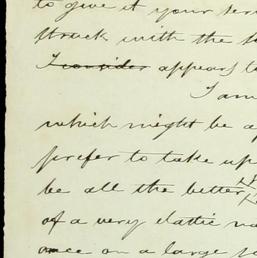 to give it your
struck with the
I consider appears to
I am
which might be
prefer to take up
be all the better
of a very elastic
once on a large